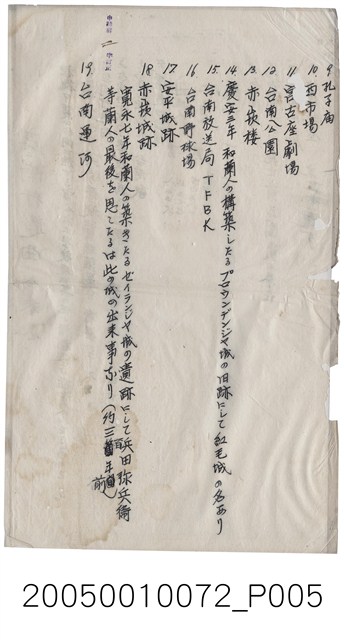 9. 孔子廟
10. 西市場
11. 宮古座劇場
12. 台南公園
13. 赤崁楼
14. 慶安三年 和蘭人の構築したるプロウンデンジヤ城の旧跡にして紅毛城の名あり
15. 台南放送局 TFBK
16. 台南野球場
17. 安平城跡
18. 赤崁城跡
寛永七年和蘭人の築きたるゼイランジヤ城の遺跡にして浜田弥兵衛
等蘭人の最後を思したるは此の城の出来事なり(約三百年前)
19. 台南運河
20050010072_P005